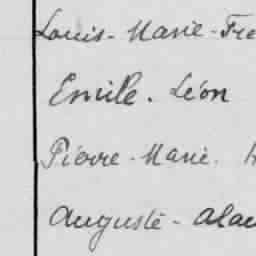 Louis-Marie-Fre
Emile. Léon
Pierre-Marie.
Auguste-Alai